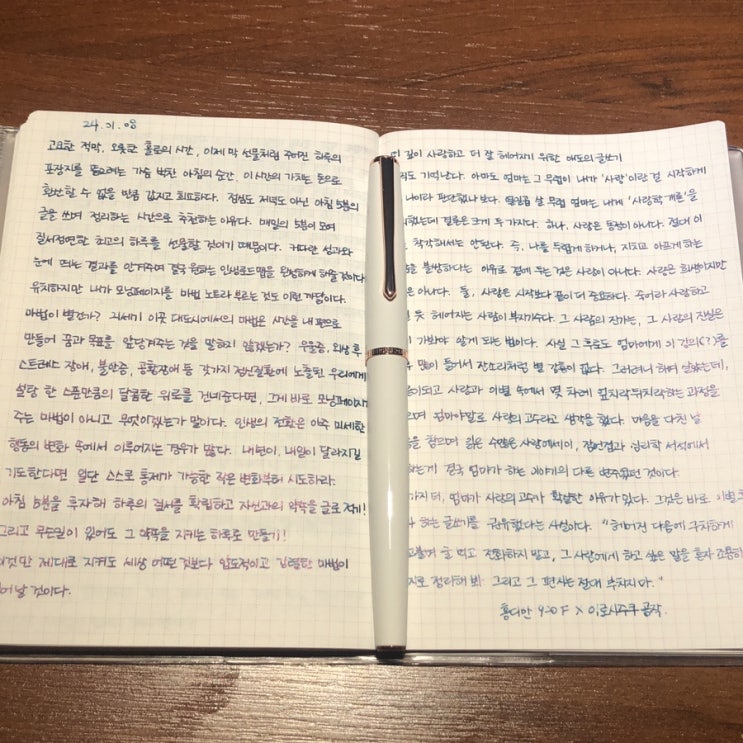 24. 01. 08
고요한 적막, 오롯한 홀로의 시간, 이제 막 선물처럼 주어진 하루의
포장지를 뜯으려는 가슴 벅찬 아침의 순간. 이 시간의 가치는 돈으로
환산할 수 없을 만큼 값지고 희소하다. 점심도 저녁도 아닌 아침 5분의
글을 쓰며 정리하는 시간으로 추천하는 이유다. 매일의 5분이 모여
질서정연한 최고의 하루를 선물할 것이기 때문이다. 커다란 성과와
눈에 띄는 결과를 안겨주며 결국 원하는 인생로드맵을 완성하게 해줄 것이다.
유치하지만 내가 모닝페이지를 마법 노트라 부르는 것도 이런 까닭이다.
마법이 별건가? 21세기 이곳 대도시에서의 마법은 시간을 내 편으로
만들어 꿈과 목표을 앞당겨주는 것을 말하지 않겠는가? 우울증, 외상 후
스트레스 장애, 불안증, 공황장애 등 갖가지 정신질환에 노출된 우리에게
설탕 한 스푼만큼의 달콤한 위로를 건네준다면, 그게 바로 모닝페이지가
주는 마법이 아니고 무엇이겠는가 말이다. 인생의 전환은 아주 미세한
행동의 변화 속에서 이루어지는 경우가 많다. 내년이, 내일이 달라지길
기도한다면 일단 스스로 통제가 가능한 작은 변화부터 시도하라.
아침 5분을 투자해 하루의 질서를 확립하고 자신과의 약속을 글로 적기!
그리고 무슨일이 있어도 그 약속을 지키는 하루로 만들기!
이것만 제대로 지켜도 세상 어떤 것보다 압도적이고 강렬한 마법이
어날 것이다.
더 깊이 사랑하고 더 잘 헤어지기 위한 애도의 글쓰기
지도 기억난다. 아마도 엄마는 그 무렵이 내가 '사랑'이란 걸 시작하게
나이라 판단했나 보다. 열일곱 살 무렵 엄마는 내게 '사랑학 개론'을
했는데 결론은 크게 두 가지다. 하나, 사랑은 동정이 아니다. 절대 이
착각해서는 안된다. 즉, 나를 두렵게 하거나, 지치고 아프게 하는
을 불쌍하다는 이유로 곁에 두는 것은 사랑이 아니다. 사랑은 희생이지만
은 아니다. 둘, 사랑은 시작보다 끝이 더 중요하다. 죽어라 사랑하고
듯 헤어지는 사람이 부지기수다. 그 사람의 진가는, 그 사람의 진실은
가봐야 알게 되는 법이다. 사실 그 후로도 엄마에게 이 강의(?)를
많이 들어서 잔소리처럼 별 감흥이 없다. 그러려니 하며 살았는데,
이되고 사랑과 이별 속에서 몇 차례 엎치락뒤치락하는 과정을
으며 엄마야말로 사랑의 고수라고 생각을 했다. 마음을 다친 날
을 참으며 읽은 수많은 사랑에세이, 잠언집과 심리학 서적에서
하는게 결국 엄마가 하는 이야기의 다른 변주였던 것이다.
가지 더, 엄마가 사랑의 고수가 확실한 이유가 있다. 그것은 바로 이별 후
하는 글쓰기를 권유했다는 사실이다. "헤어진 다음에 구차하게
술 먹고 전화하지 말고, 그 사람에게 하고 싶은 말을 혼자 조용히
지로 정리해 봐. 그리고 그 편지는 절대 부치지 마."
홍디안 920 F X 이로시주쿠 공작.